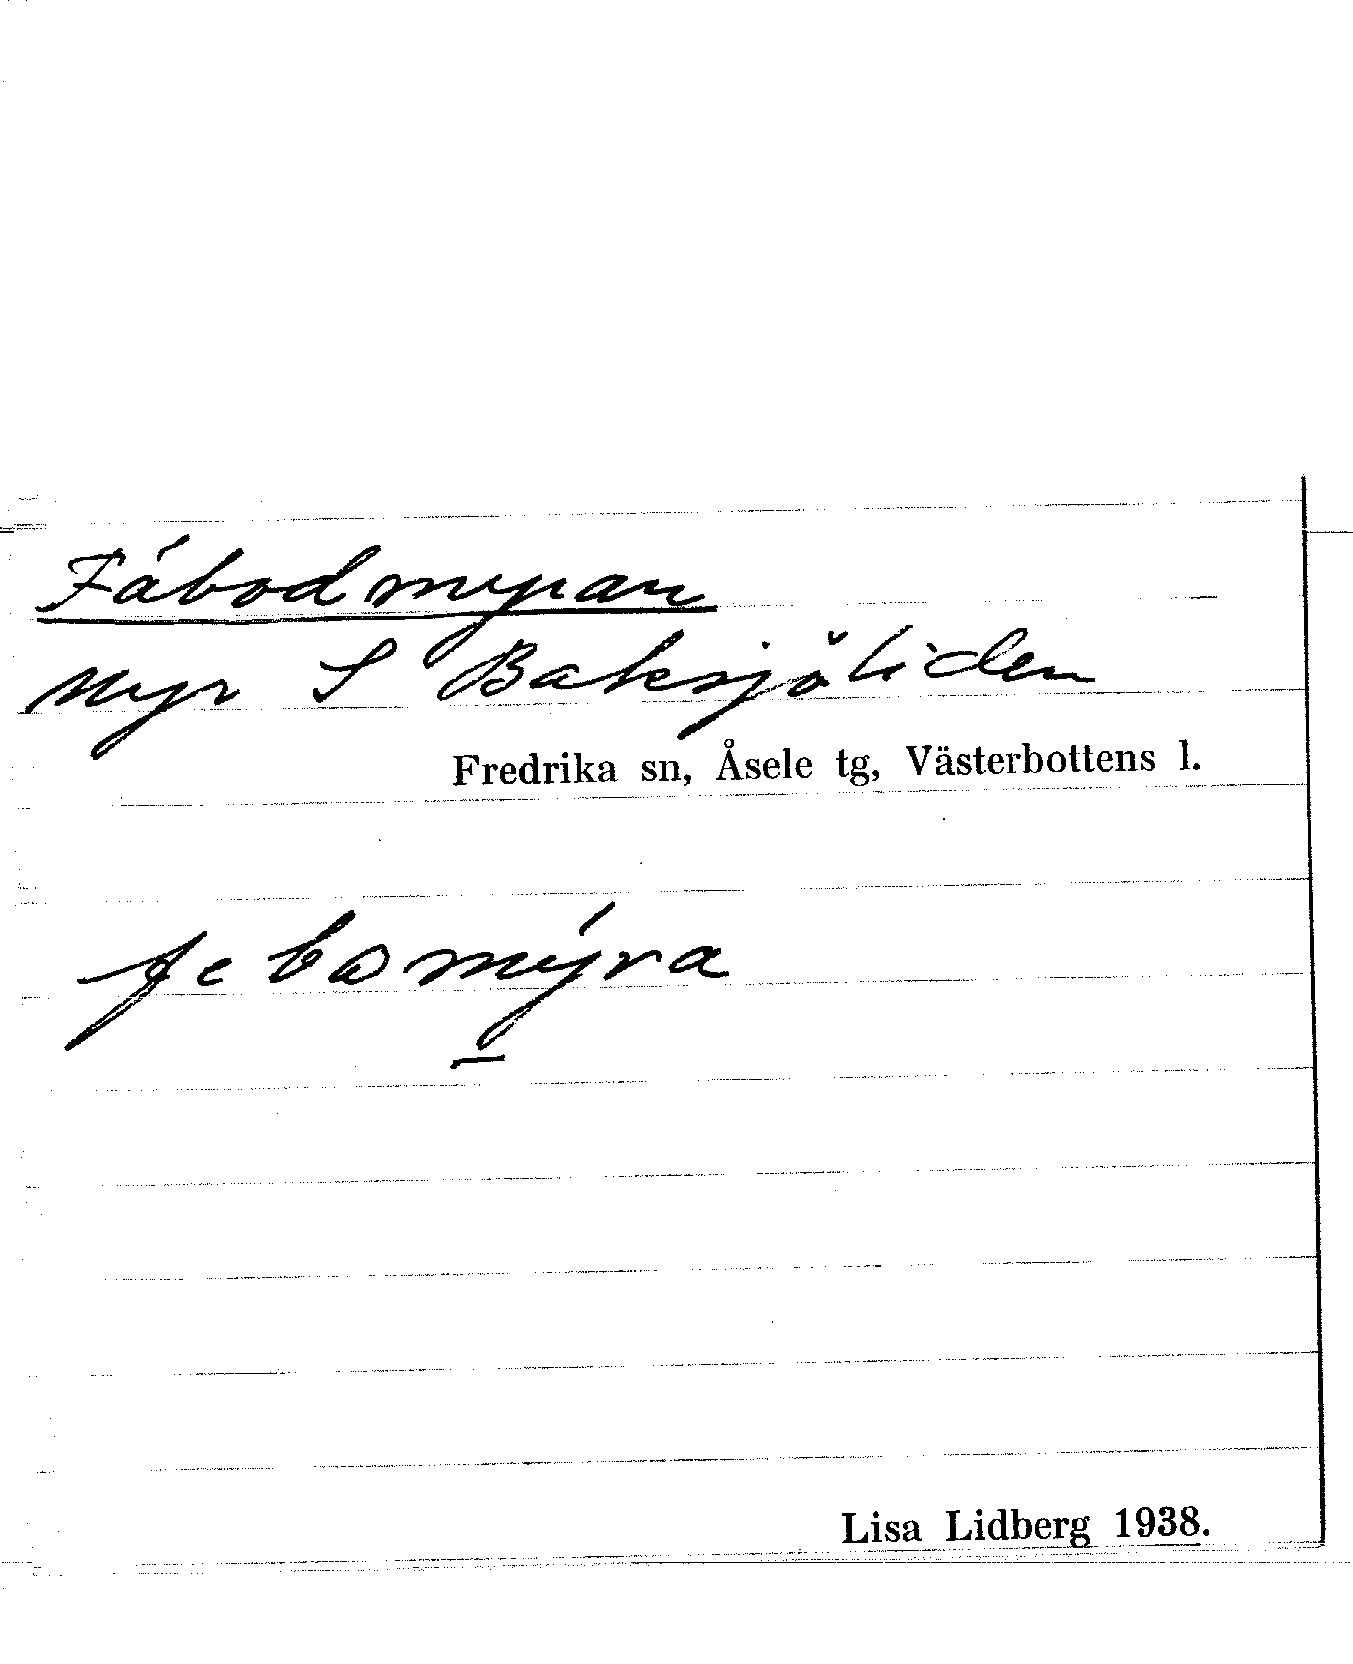 Fäbodmyran
Myr S Baksjöliden
Fredrika sn, Åsele tg, Västerbottens l.
febωmýra
Lisa Lidberg 1938.